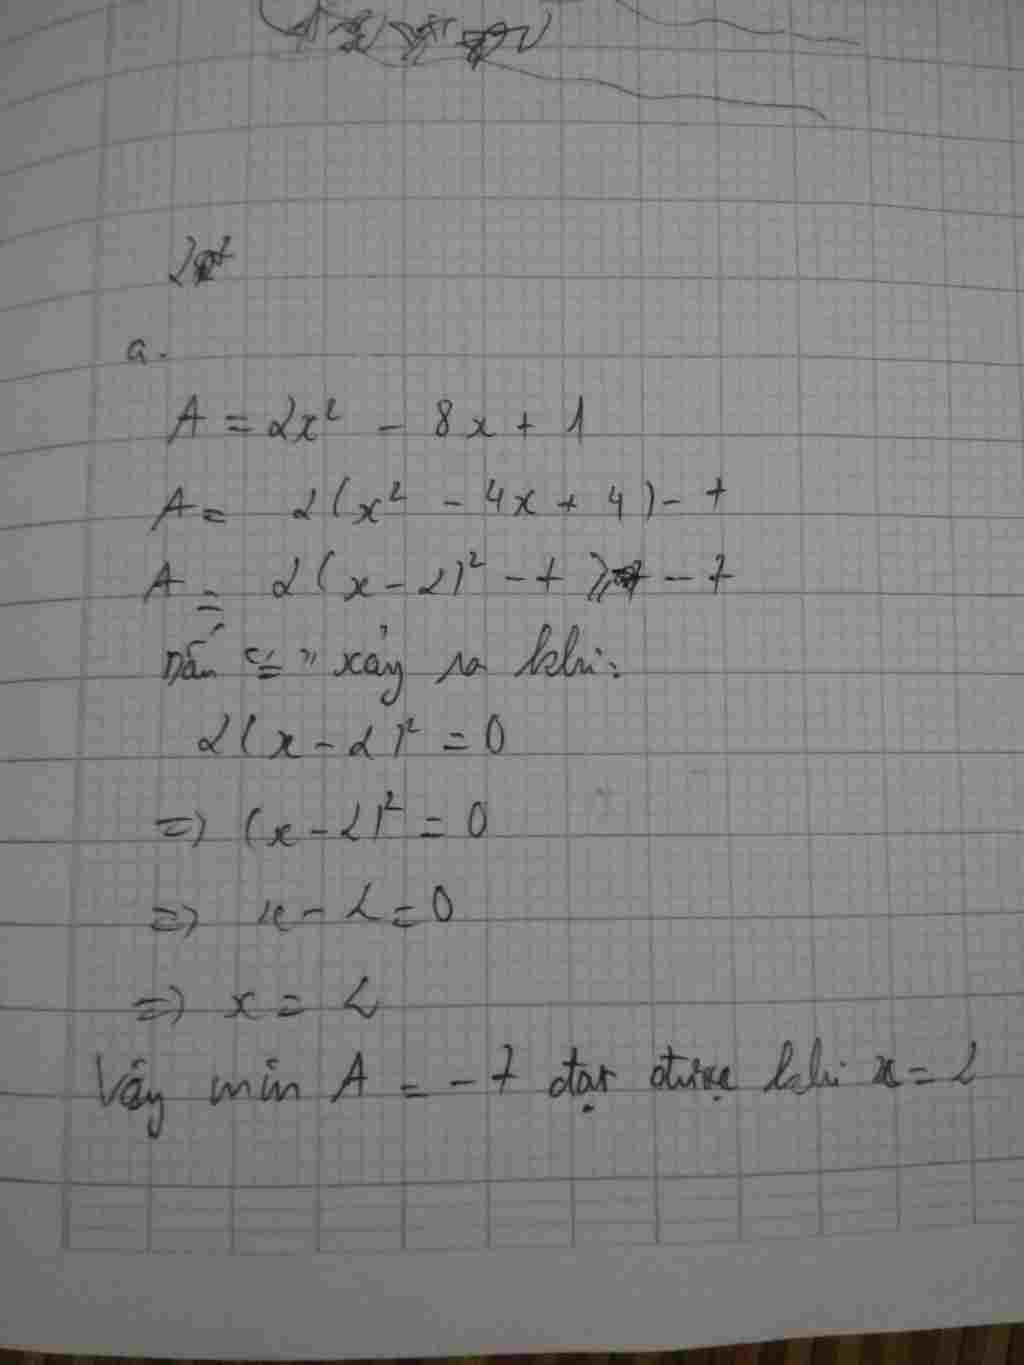 a.
A = 2x² - 8x + 1
A = 2(x² - 4x + 4) - 7
A = 2(x - 2)² - 7 ⩾ - 7
Dấu "=" xảy ra khi:
2(x - 2)² = 0
=> (x - 2)² = 0
=> x - 2 = 0
=> x = 2
Vậy min A = - 7 đạt được khi x = 2